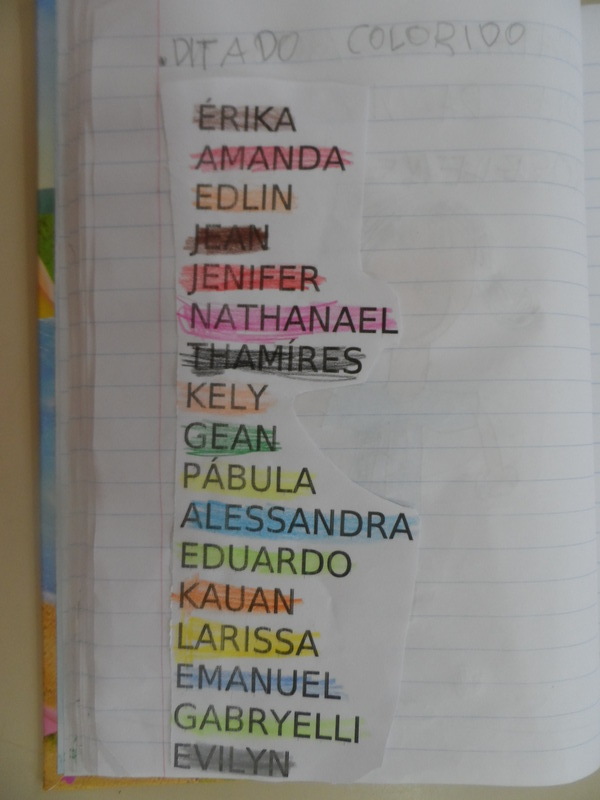 .DITADO COLORIDO
ÉRIKA
AMANDA
EDLIN
JEAN
JENIFER
NATHANAEL
THAMÍRES
KELY
GEAN
PÁBULA
ALESSANDRA
EDUARDO
KAUAN
LARISSA
EMANUEL
GABRYELLI
EVILYN